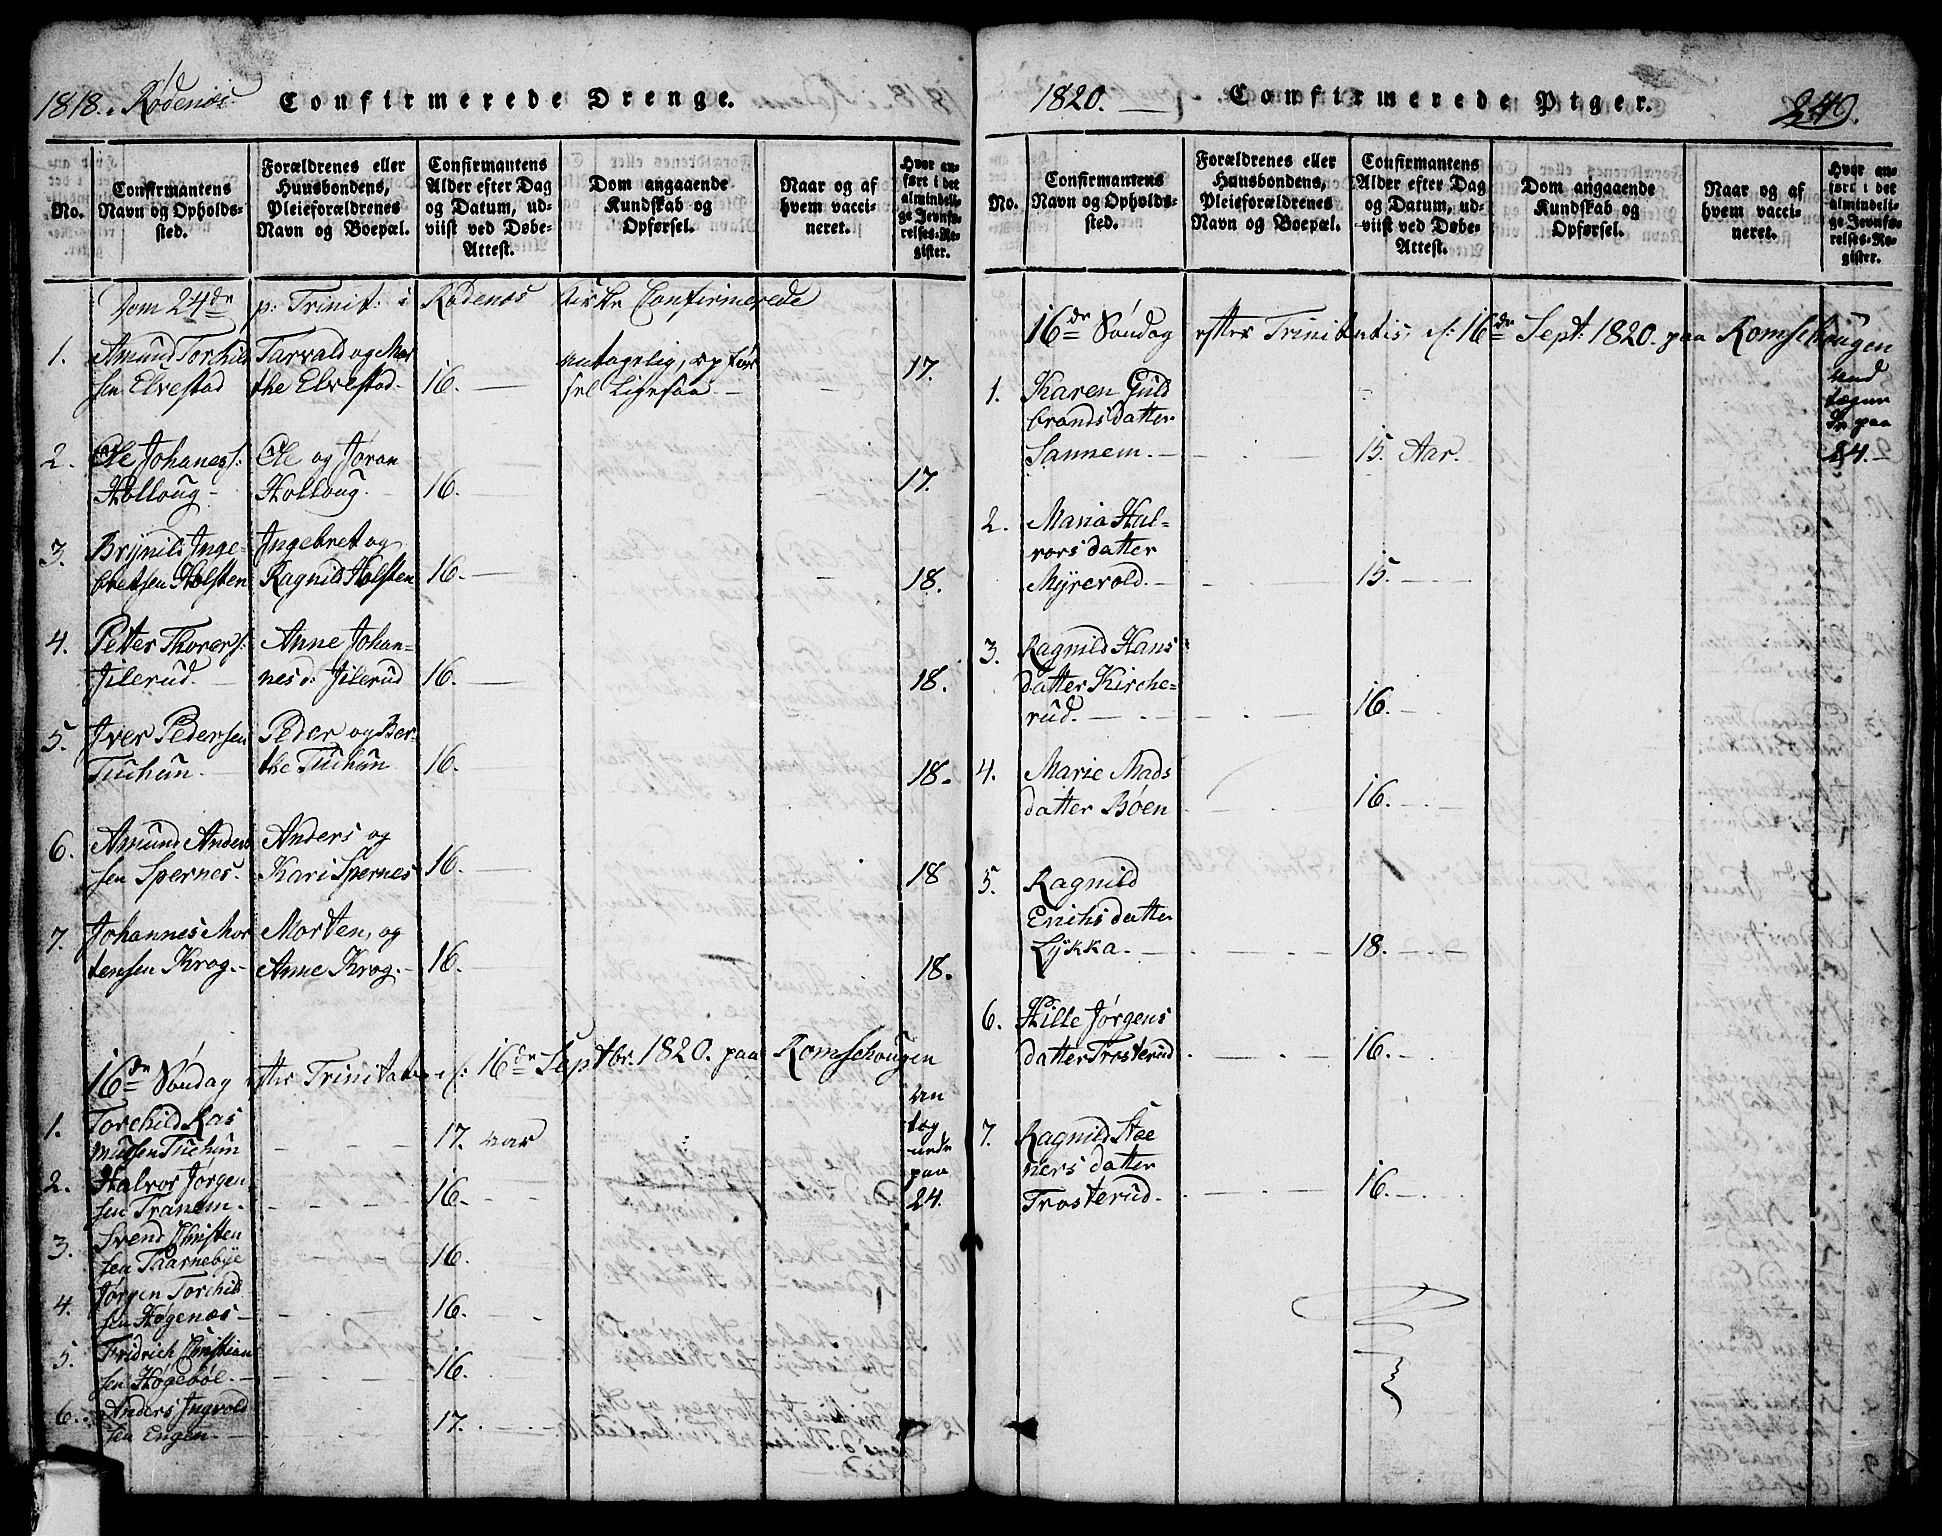 1818. i Rødenæs. Confirmerede Drenge.
No.
Confirmantens Navn og Opholds-sted.
Forældrenes eller Huusbondens, Pleieforældrenes Navn og Boepæl.
Confirmantens Alder efter Dag og Datum, ud-viist ved Døbe-Attest.
Dom angaaende Kundskab og Opførsel.
Naar og af hvem vacci-neret.
Hvor an-ført i det almindeli-ge Jevnfø-relses-Re-gister.
Dom 24de p: Trinit: i Rødenæs Kirke Confirmerede
1. Amund Torchild Tarvald og Mar antagelig, opfør 17.
sen Elvestad the Elvestad. 16. — sel Ligesaa. —
2. Ole Johaness: Ole og Jøran
Holloug — Holloug. — 16. 17.
3. Brÿnild Inge- Ingebret og
bretsen Holsten Ragnild Holsten 16. — 18.
4. Petter Thorers: Anne Johan-
Jilerud. nesd: Jilerud 16. 18.
5. Iver Pedersen Peder og Ber-
Tuchun. — the Tuchun 16. 18.
6. Amund Anders Anders og
sen Spernes. Kari Spernes 16. 18
7. Johannes Mor Morten, og
tensen Krog. — Anne Krog. — 16. 18.
16de Søndag efter Trinitatis, d: 16de Septbr. 1820. paa Romschougen
1. Torchild Ras
mussen Tuchun 17. aar
an
tog
nede
paa
24.
2. Halvor Jørgen
sen Tranem. 16.
3. Svend Christen
sen Taarnebÿe 16.
4. Jørgen Torchild
sen Høgenæs — 16.
5. Fridrich Christian
sen Høgebøl. — 16.
6. Anders Ingvold
sen Engen. — 17.
1820. — Confirmerede Piger. 249.
No.
Confirmantens Navn og Opholds-sted.
Forældrenes eller Huusbondens, Pleieforældrenes Navn og Boepæl.
Confirmantens Alder efter Dag og Datum, ud-viist ved Døbe-Attest.
Dom angaaende Kundskab og Opførsel.
Naar og af hvem vacci-neret.
Hvor an-ført i det almindeli-ge Jevnfø-relses-Re-gister.
16de Søndag efter Trinitatis, d: 16de Sept: 1820. paa Romschougen
1. Karen Guld
brandsdatter
Sannem. — 15. Aar.
paa
24. —
2. Maria Hal-
vorsdatter
Mÿrevold. — 15.
3. Ragnild Hans
datter Kirche-
rud. — 16.
4. Marie Mads
datter Bøen 16.
5. Ragnild
Erichsdatter
Lÿkka. — 18.
6. Hille Jørgens
datter Trosterud 16.
7. Ragnild Stee
ners datter
Trosterud. 16.